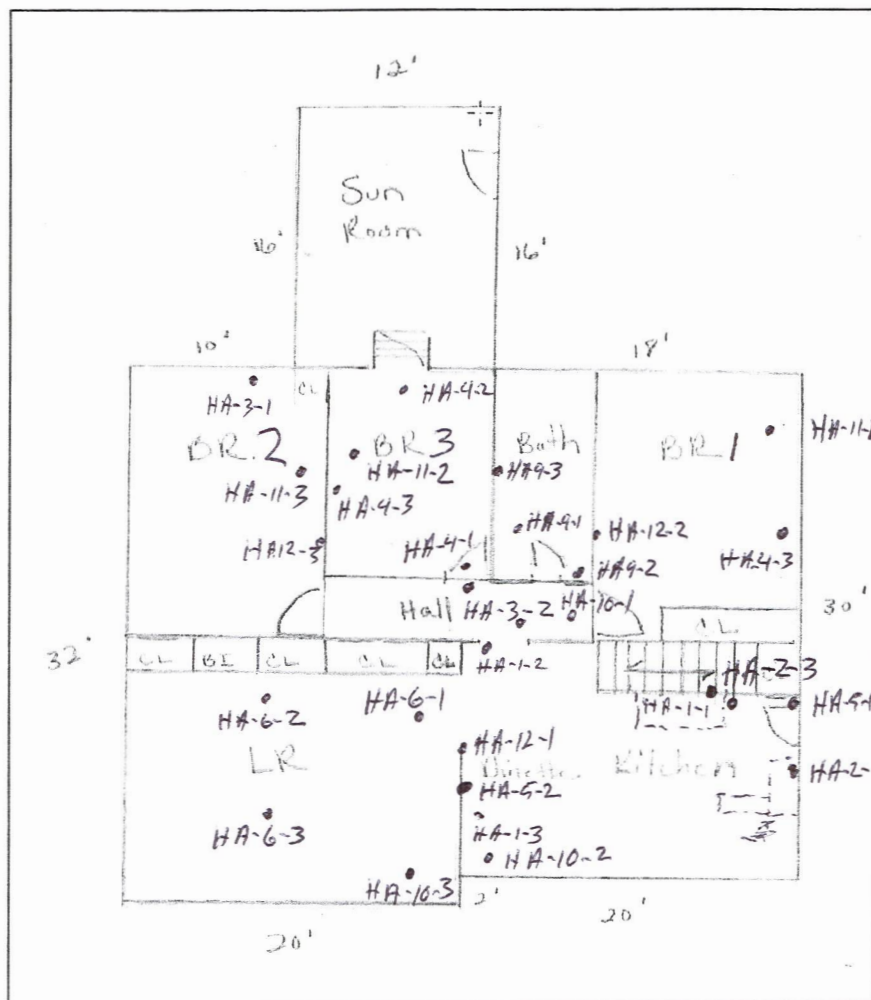 12'
Sun
Room
16'
16'
10'
18'
CL
HA-4-2
HA-3-1
HA-11-
BR.2
BR3
Bath
BR1
HA-11-2
HA9-3
HA-11-3
HA-4-3
HA9-1
HA-12-2
HA-4-3
HA12-3
HA-4-1
HA9-2
Hall
HA-3-2
HA-10-1
30'
CL
32'
CL
BI
CL
CL
CL
HA-1-2
HA-2-3
HA-6-1
HA-1-1
HA-6-2
HA-12-1
LR
Dinette
Kitchen
HA-2-
HA-5-2
HA-6-3
HA-1-3
HA-10-2
HA-10-3
2'
20'
20'